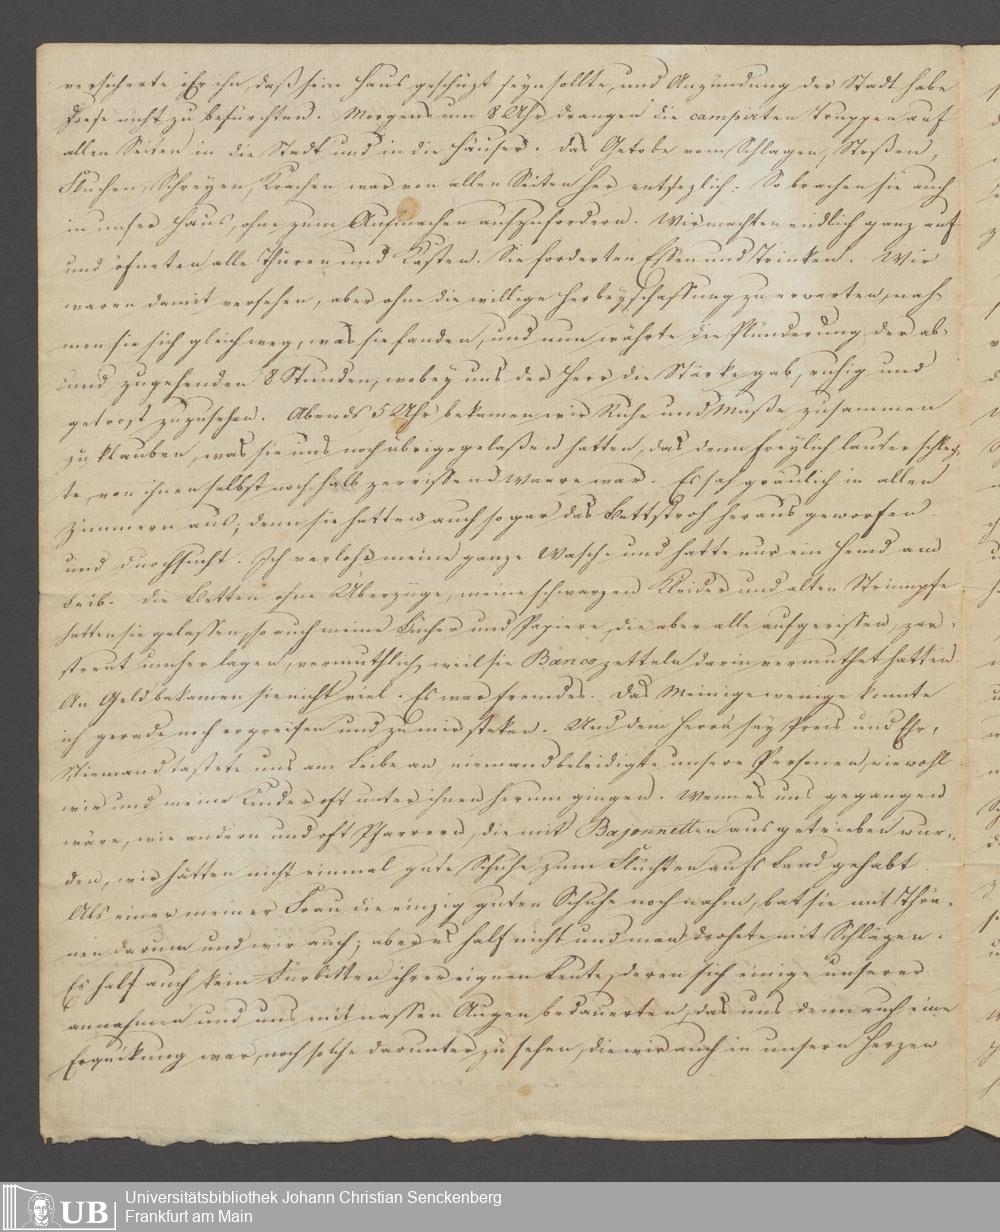 versicherte Er ihn, daß sein Haus geschüzt seyn sollte, und Anzündung der Stadt habe
diese nicht zu befürchten. Morgens um 8 Uhr drangen die campirten Truppen auf
allen Seiten in die Stadt und in die Häuser. Das Getobe vom Schlagen, Stoßen,
Fluchen, Schreyen, Krachen war von allen Seiten her entsezlich. So brachen sie auch
in unser Haus, ohne zum Aufmachen aufzufordern. Wir machten endlich ganz auf
und öfneten alle Thüren und Kasten. Sie forderten Essen und Trinken. Wir
waren damit versehen, aber ohne die willige Herbeyschaffung zu erwarten, nah-
men sie sich gleich weg, was sie fanden, und nun währte die Plünderung der ab-
und zugehenden 8 Stunden, wobey uns der Herr die Stärke gab, ruhig und
getrost zuzusehen. Abends 5 Uhr bekamen wir Ruhe und Muße zusammen
zu klauben, was sie uns noch übrig gelaßen hatten, das denn freylich lauter schlech-
te, von ihnen selbst noch halb zerrissene Waare war. Es sah gräulich in allen
Zimmern aus, denn sie hatten auch sogar das Bettstroh heraus geworfen
und durchsucht. Ich verlohr meine ganze Wasche und hatte nur ein Hemd am
Leib. Die Betten ohne Überzüge, meine schwarzen Kleider und alten Strümpfe
hatten sie gelassen, so auch meine Bücher und Papiere, die aber alle aufgerissen, zer-
streut umher lagen, vermuthlich, weil sie Bancozetteln darin vermuthet hatten.
An Geld bekamen sie nicht viel. Es war fremdes. Das Meinige wenige konnte
ich gerade noch ergreifen und zu mir steken. Und dem Herrn sey Preis und Ehr,
Niemand tastete uns am Leibe an, niemand beleidigte unsere Personen, wie wohl
wir und meine Kinder oft unter ihnen herum gingen. Wenn es uns gegangen
wäre, wie andern und oft Pfarrern, die mit Bajonnetten aus getrieben wur-
den, wir hätten nicht einmal gute Schuhe zum Flüchten aufs Land gehabt.
Als einer meiner Frau die einzig guten Schuhe noch nahm, bat sie mit Thrä-
nen darum und wir auch; aber es half nicht und man drohete mit Schlägen.
Es half auch kein Fürbitten ihrer eignen Leute, deren sich einige unserer
annahmen und uns mit nassen Augen bedauerten, das uns denn auch eine
Erquikung war, noch solche darunter zu sehen, die wir auch in unsern Herzen
Universitätsbibliothek Johann Christian Senckenberg
Frankfurt am Main
UB